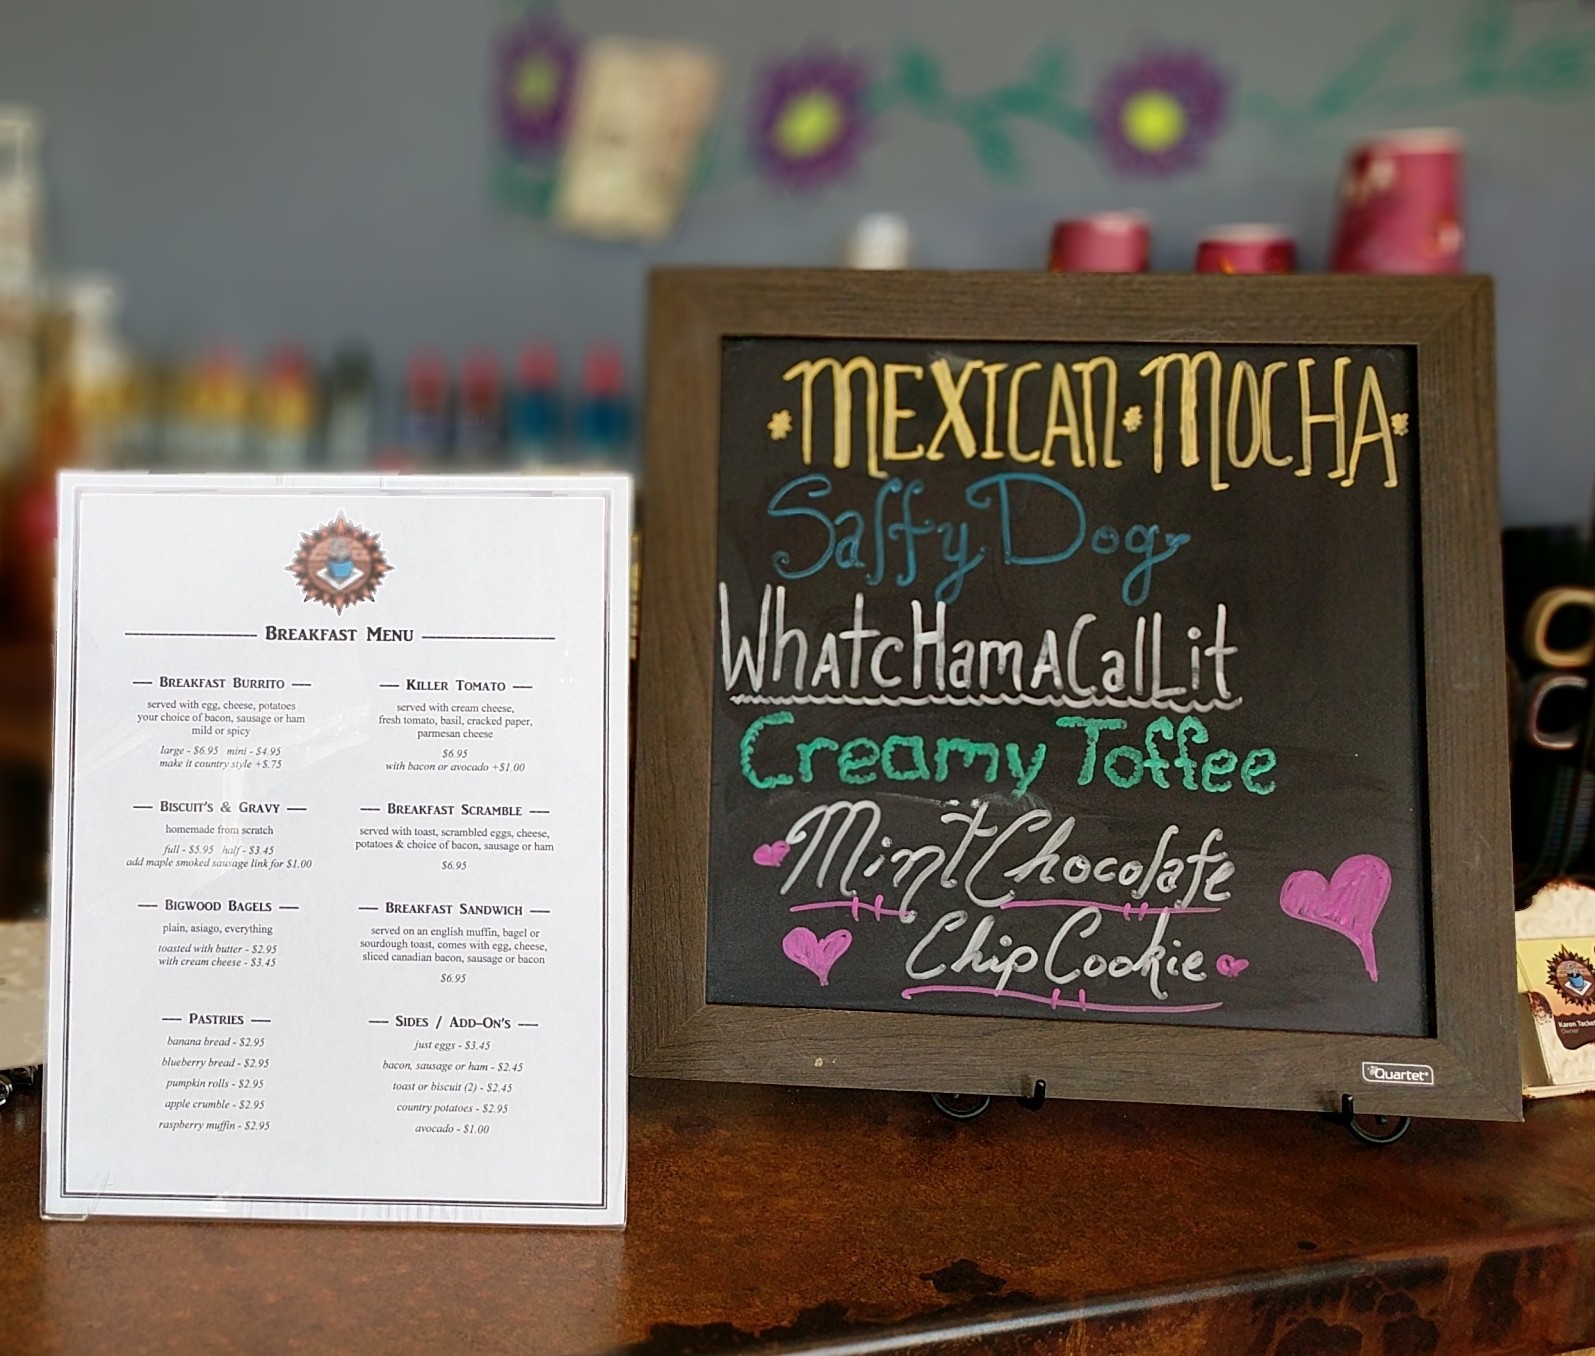 BREAKFAST MENU
BREAKFAST BURRITO
served with egg, cheese, potatoes
your choice of bacon, sausage or ham
mild or spicy
large - $6.95 mini - $4.95
make it country style +$.75
BISCUIT'S & GRAVY
homemade from scratch
full - $5.95 half - $3.45
add maple smoked sausage link for $1.00
BIGWOOD BAGELS
plain, asiago, everything
toasted with butter - $2.95
with cream cheese - $3.45
PASTRIES
banana bread - $2.95
blueberry bread - $2.95
pumpkin rolls - $2.95
apple crumble - $2.95
raspberry muffin - $2.95
KILLER TOMATO
served with cream cheese,
fresh tomato, basil, cracked paper,
parmesan cheese
$6.95
with bacon or avocado +$1.00
BREAKFAST SCRAMBLE
served with toast, scrambled eggs, cheese,
potatoes & choice of bacon, sausage or ham
$6.95
BREAKFAST SANDWICH
served on an english muffin, bagel or
sourdough toast, comes with egg, cheese,
sliced canadian bacon, sausage or bacon
$6.95
SIDES / ADD-ON'S
just eggs - $3.45
bacon, sausage or ham - $2.45
toast or biscuit (2) - $2.45
country potatoes - $2.95
avocado - $1.00
MEXICAN MOCHA
Salty Dog
WhatcHamACallit
Creamy Toffee
Mint Chocolate
Chip Cookie
Quartet
Karen
Owner